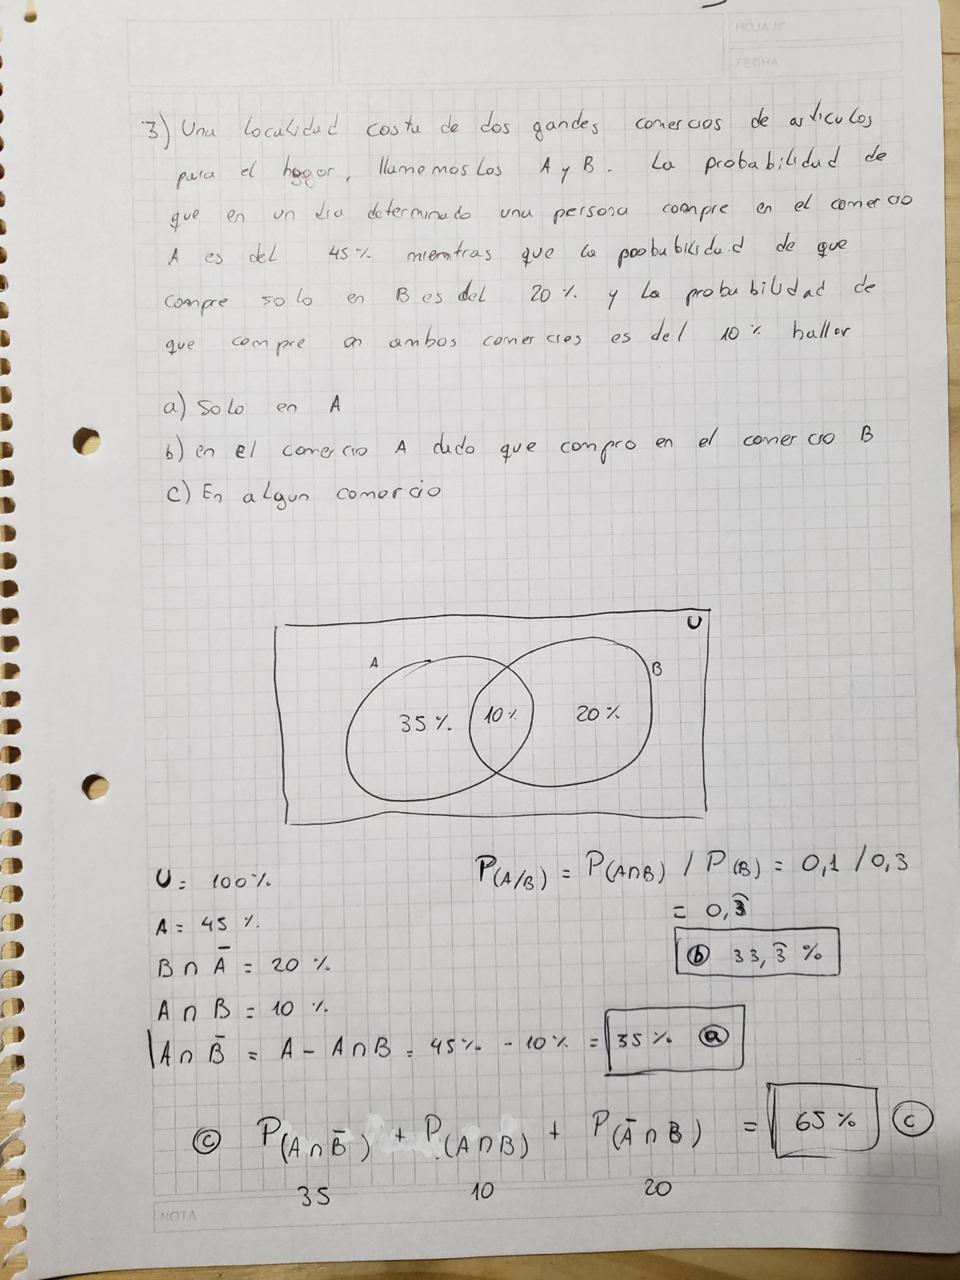 HOJA N°
FECHA
3) Una localidad costa de dos gandes comercios de articulos
para el hogar, llamemoslos A y B. La probabilidad de
que en un dia determinado una persona compre en el comercio
A es del 45% mientras que la poobabilidad de que
compre solo en B es del 20% y la probabilidad de
que compre en ambos comercios es del 10% hallar
a) Solo en A
b) en el comercio A dado que compro en el comercio B
c) En algun comercio
U
A B
35% 10% 20%
U = 100%
A = 45%
B ∩ A̅ = 20%
A ∩ B = 10%
A ∩ B̅ = A - A ∩ B = 45% - 10% = 35% ⓐ
P(A/B) = P(A∩B) / P(B) = 0,1 / 0,3
= 0,3̂
ⓑ 33,3̂ %
ⓒ P(A ∩ B̅) + P(A ∩ B) + P(A̅ ∩ B) = 65% ⓒ
35 10 20
NOTA